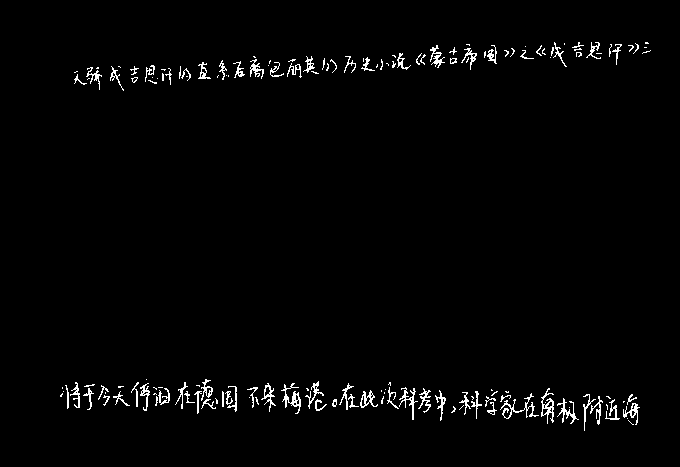 天骄成吉思汗的直系后裔包丽英的历史小说《蒙古帝国》之《成吉思汗》三
将于今天停泊在德国不来梅港。在此次科考中,科学家在南极附近海